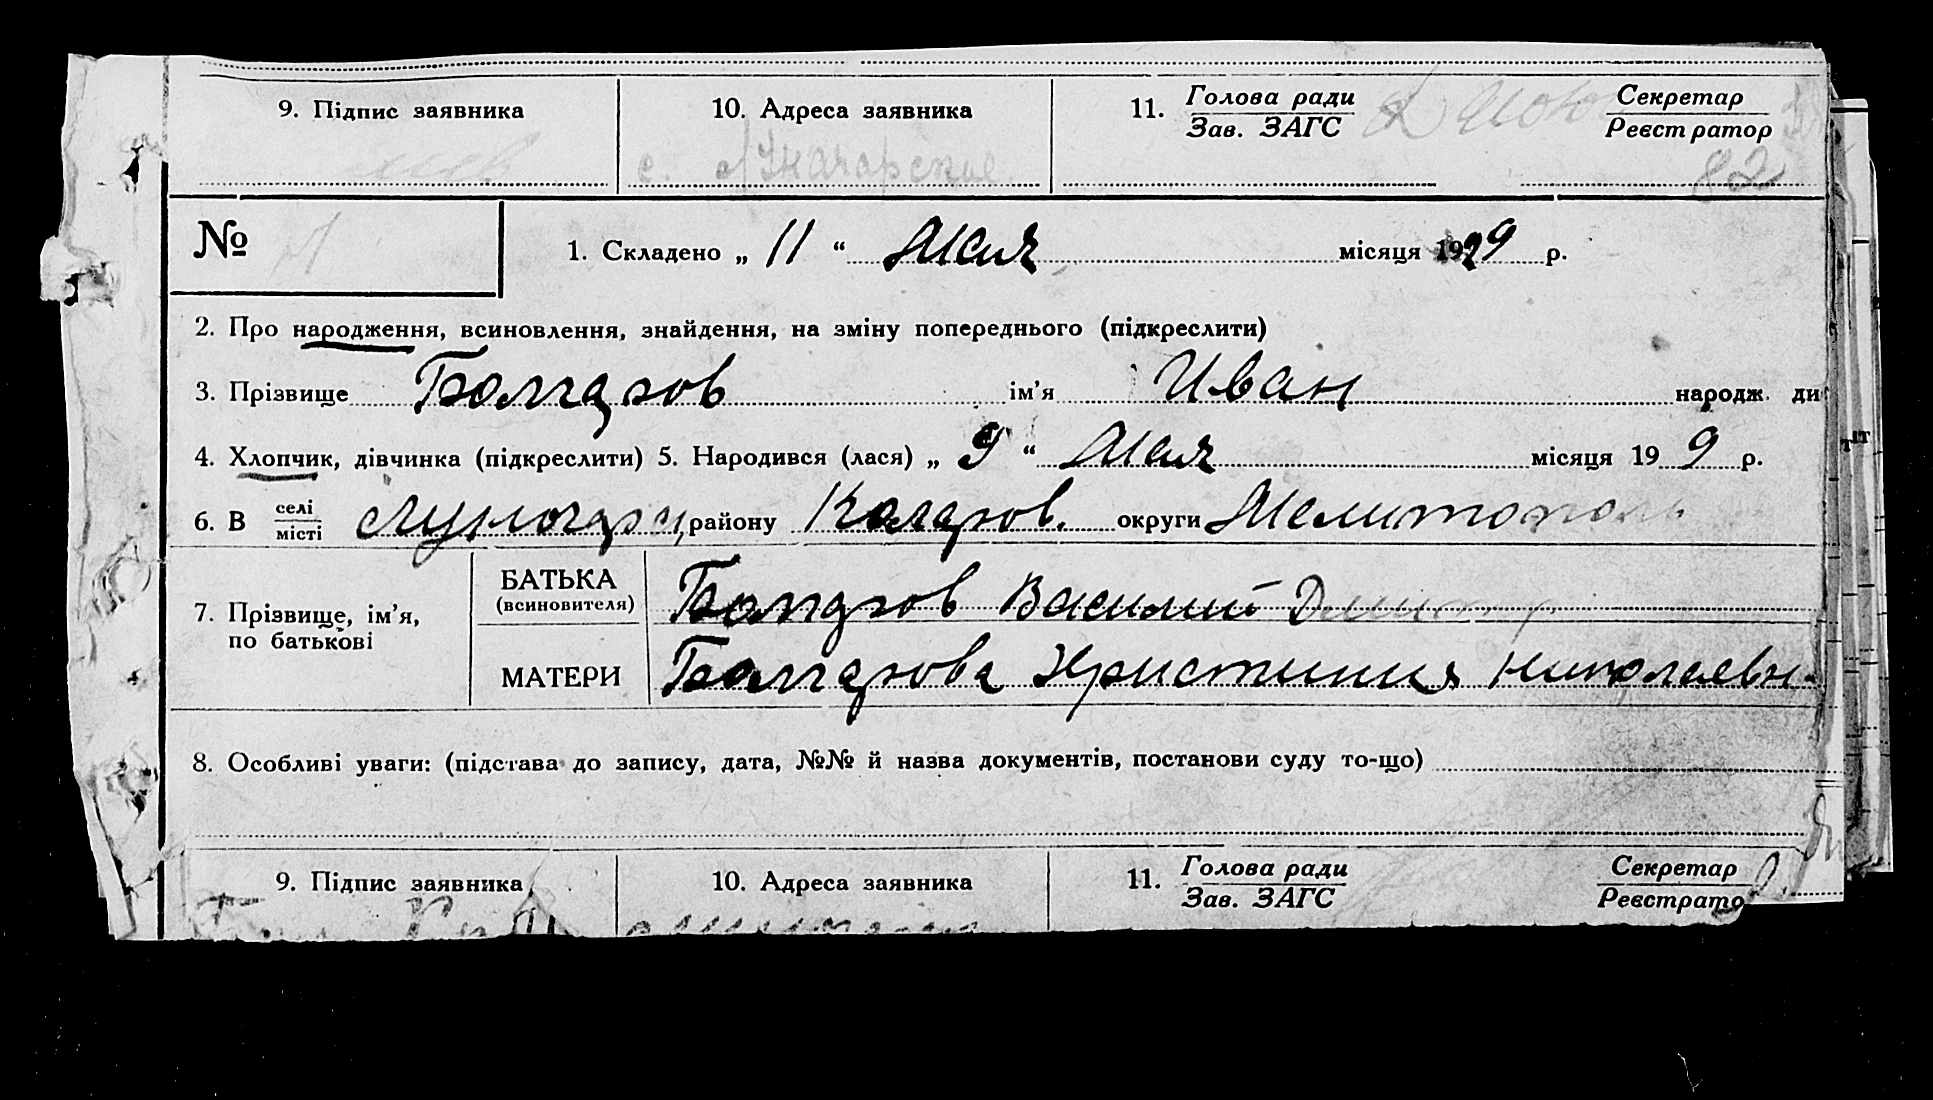 9. Підпис заявника 10. Адреса заявника 11. Голова ради Секретар
Зав. ЗАГС Реєстратор
с. 82
№ 1. Складено „ 11 “ Мая місяця 1929 р.
2. Про народження, всиновлення, знайдення, на зміну попереднього (підкреслити)
3. Прізвище Болгаров ім’я Иван народж. ди
4. Хлопчик, дівчинка (підкреслити) 5. Народився (лася) „ 9 “ Мая місяця 19 9 р.
6. В селі району округи Мелитополь
місті
БАТЬКА Болгаров Василий
(всиновителя)
7. Прізвище, ім’я,
по батькові
МАТЕРИ Болгарова Христиния Николаевн.
8. Особливі уваги: (підстава до запису, дата, №№ й назва документів, постанови суду то-що)
9. Підпис заявника 10. Адреса заявника 11. Голова ради Секретар
Зав. ЗАГС Реєстрато